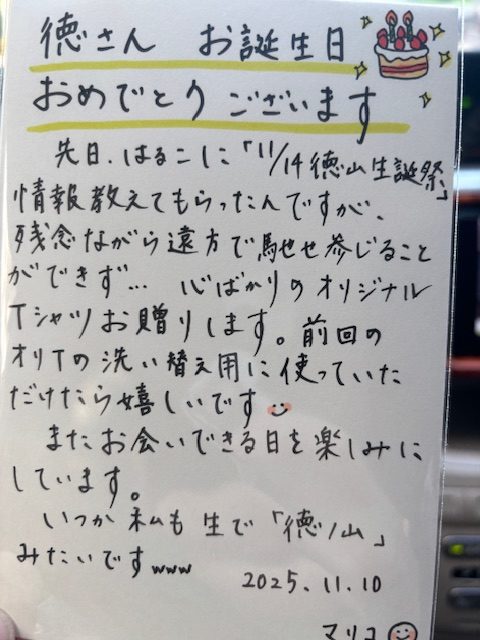 徳さん お誕生日
おめでとうございます
先日、はるこしに「11/14徳山生誕祭」
情報教えてもらったんですが、
残念ながら遠方で馳せ参じること
ができず… 心ばかりのオリジナル
Tシャツお贈りします。前回の
オリTの洗い替え用に使っていた
だけたら嬉しいです
またお会いできる日を楽しみに
しています。
いつか私も生で「徳ノ山」
みたいですwww
2025.11.10
マリコ